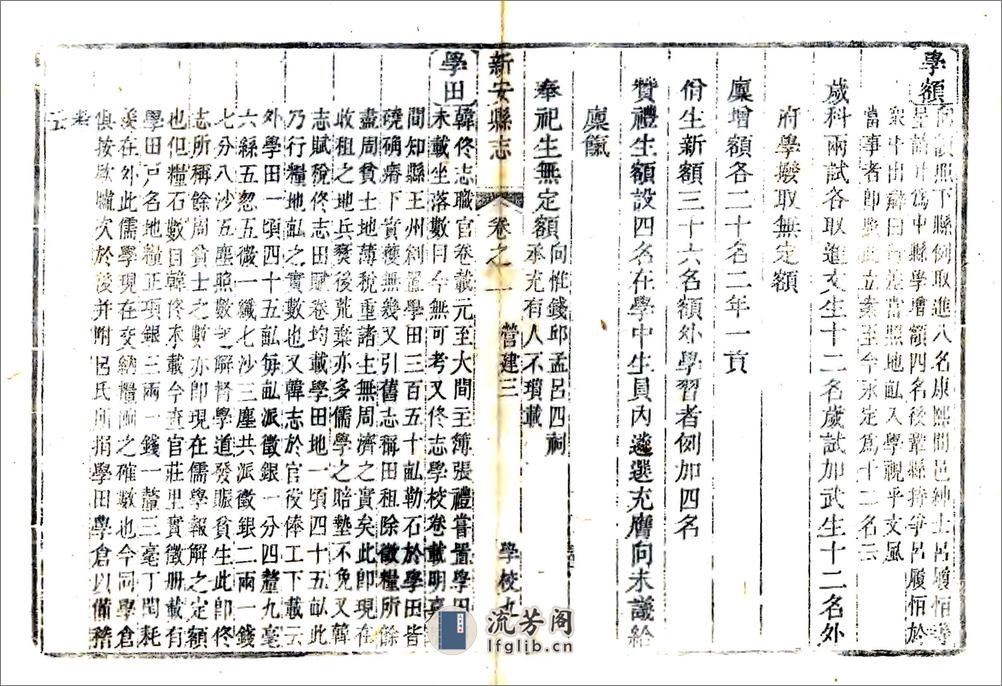 學額
向額照下縣例取進八名康熙間邑紳士呂履恒等
呈請升為中縣學增額四名後鞏縣持爭呂履恒於
眾中出辯曰
當照地畝入學視乎文風
當事者即據此立案至今永定為十二名云
歲科兩試各取進文生十二名歲試加武生十二名外
府學撥取無定額
廩增額各二十名二年一貢
佾生新額三十六名額外學習者例加四名
贊禮生額設四名在學中生員內遴選充膺向未議給
廩餼
奉祀生無定額
向惟錢邱孟呂四祠
承充有人不瓊載
新安縣志
卷之一
營建三
學校九
學田
韓佟志職官卷載元至大間主簿張禮嘗置學田
未載坐落數目今無可考又佟志學校卷載明嘉
間知縣王州創置學田三百五十畝勒石於學田皆
磽确瘠下實穫無幾又引舊志稱田租除徵糧所餘
盡周貧士地薄稅重諸生無周濟之實矣此即現在
收租之地兵燹後荒蕪亦多儒學之賠墊不免又韓
志賦稅佟志田賦卷均載學田地一頃四十五畝此
乃行糧地畝之實數也又韓志於官役俸工下載云
外學田一頃四十五畝每畝派徵銀一分四釐九毫
六絲五忽五微一纖七沙三塵共派徵銀二兩一錢
七分八沙五塵照數起解督學道發賑貧生此即佟
志所稱餘周貧士之數亦即現在儒學報解之定額
也但糧石數目韓佟未載今查官莊里實徵册載有
學田戶名地糧正項銀三兩一錢一釐三毫丁閏耗
羨在外此儒學現在交納糧兩之確數也今同學倉
俱按歐次於後并附呂氏所捐學田學倉以備稽
考
流芳阁
lfglib.cn